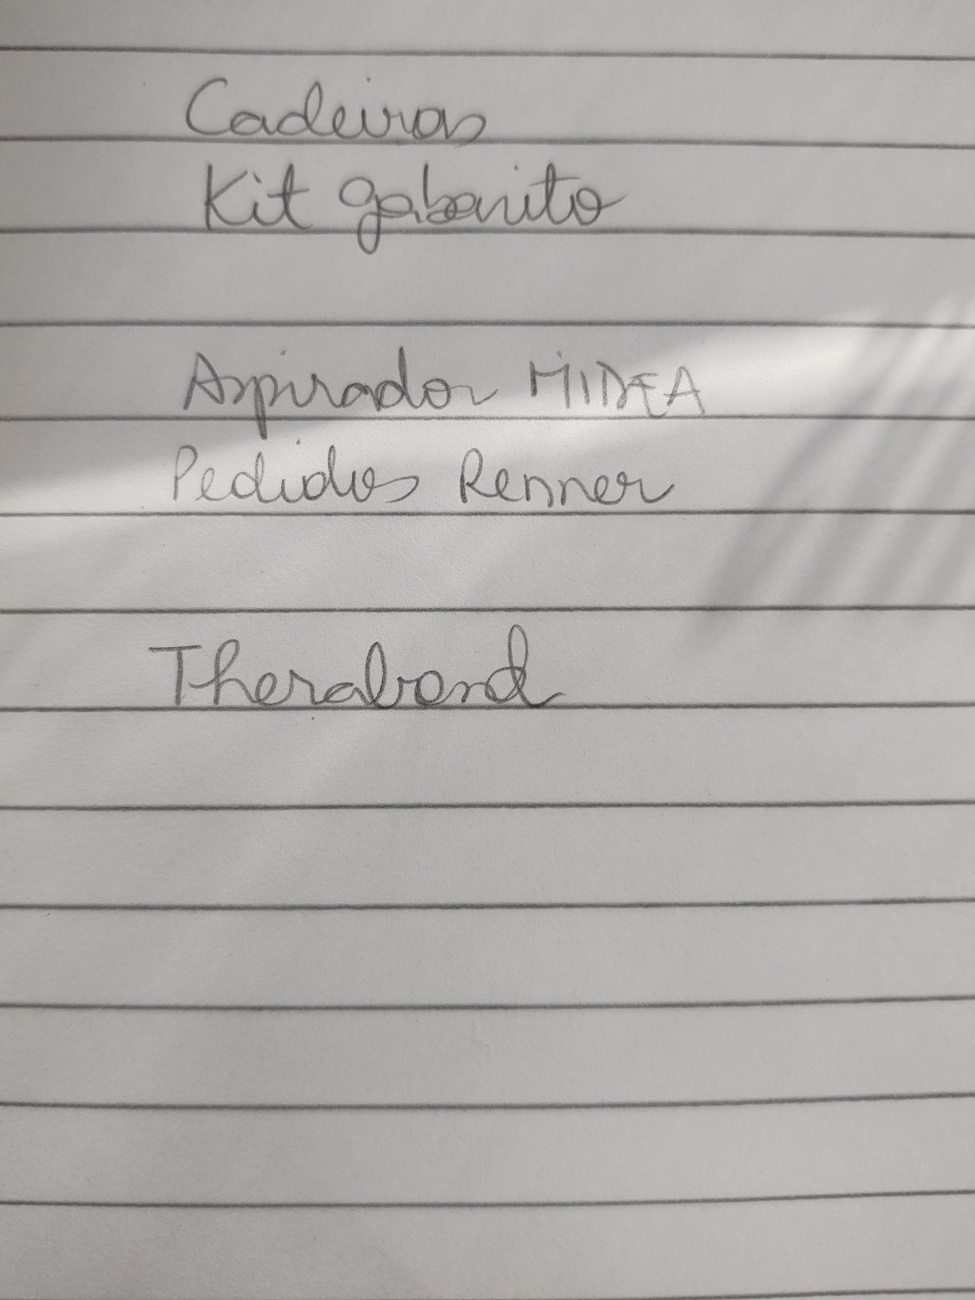 Cadeiras
Kit gabarito
Aspirador MIDEA
Pedidos Renner
Theraband